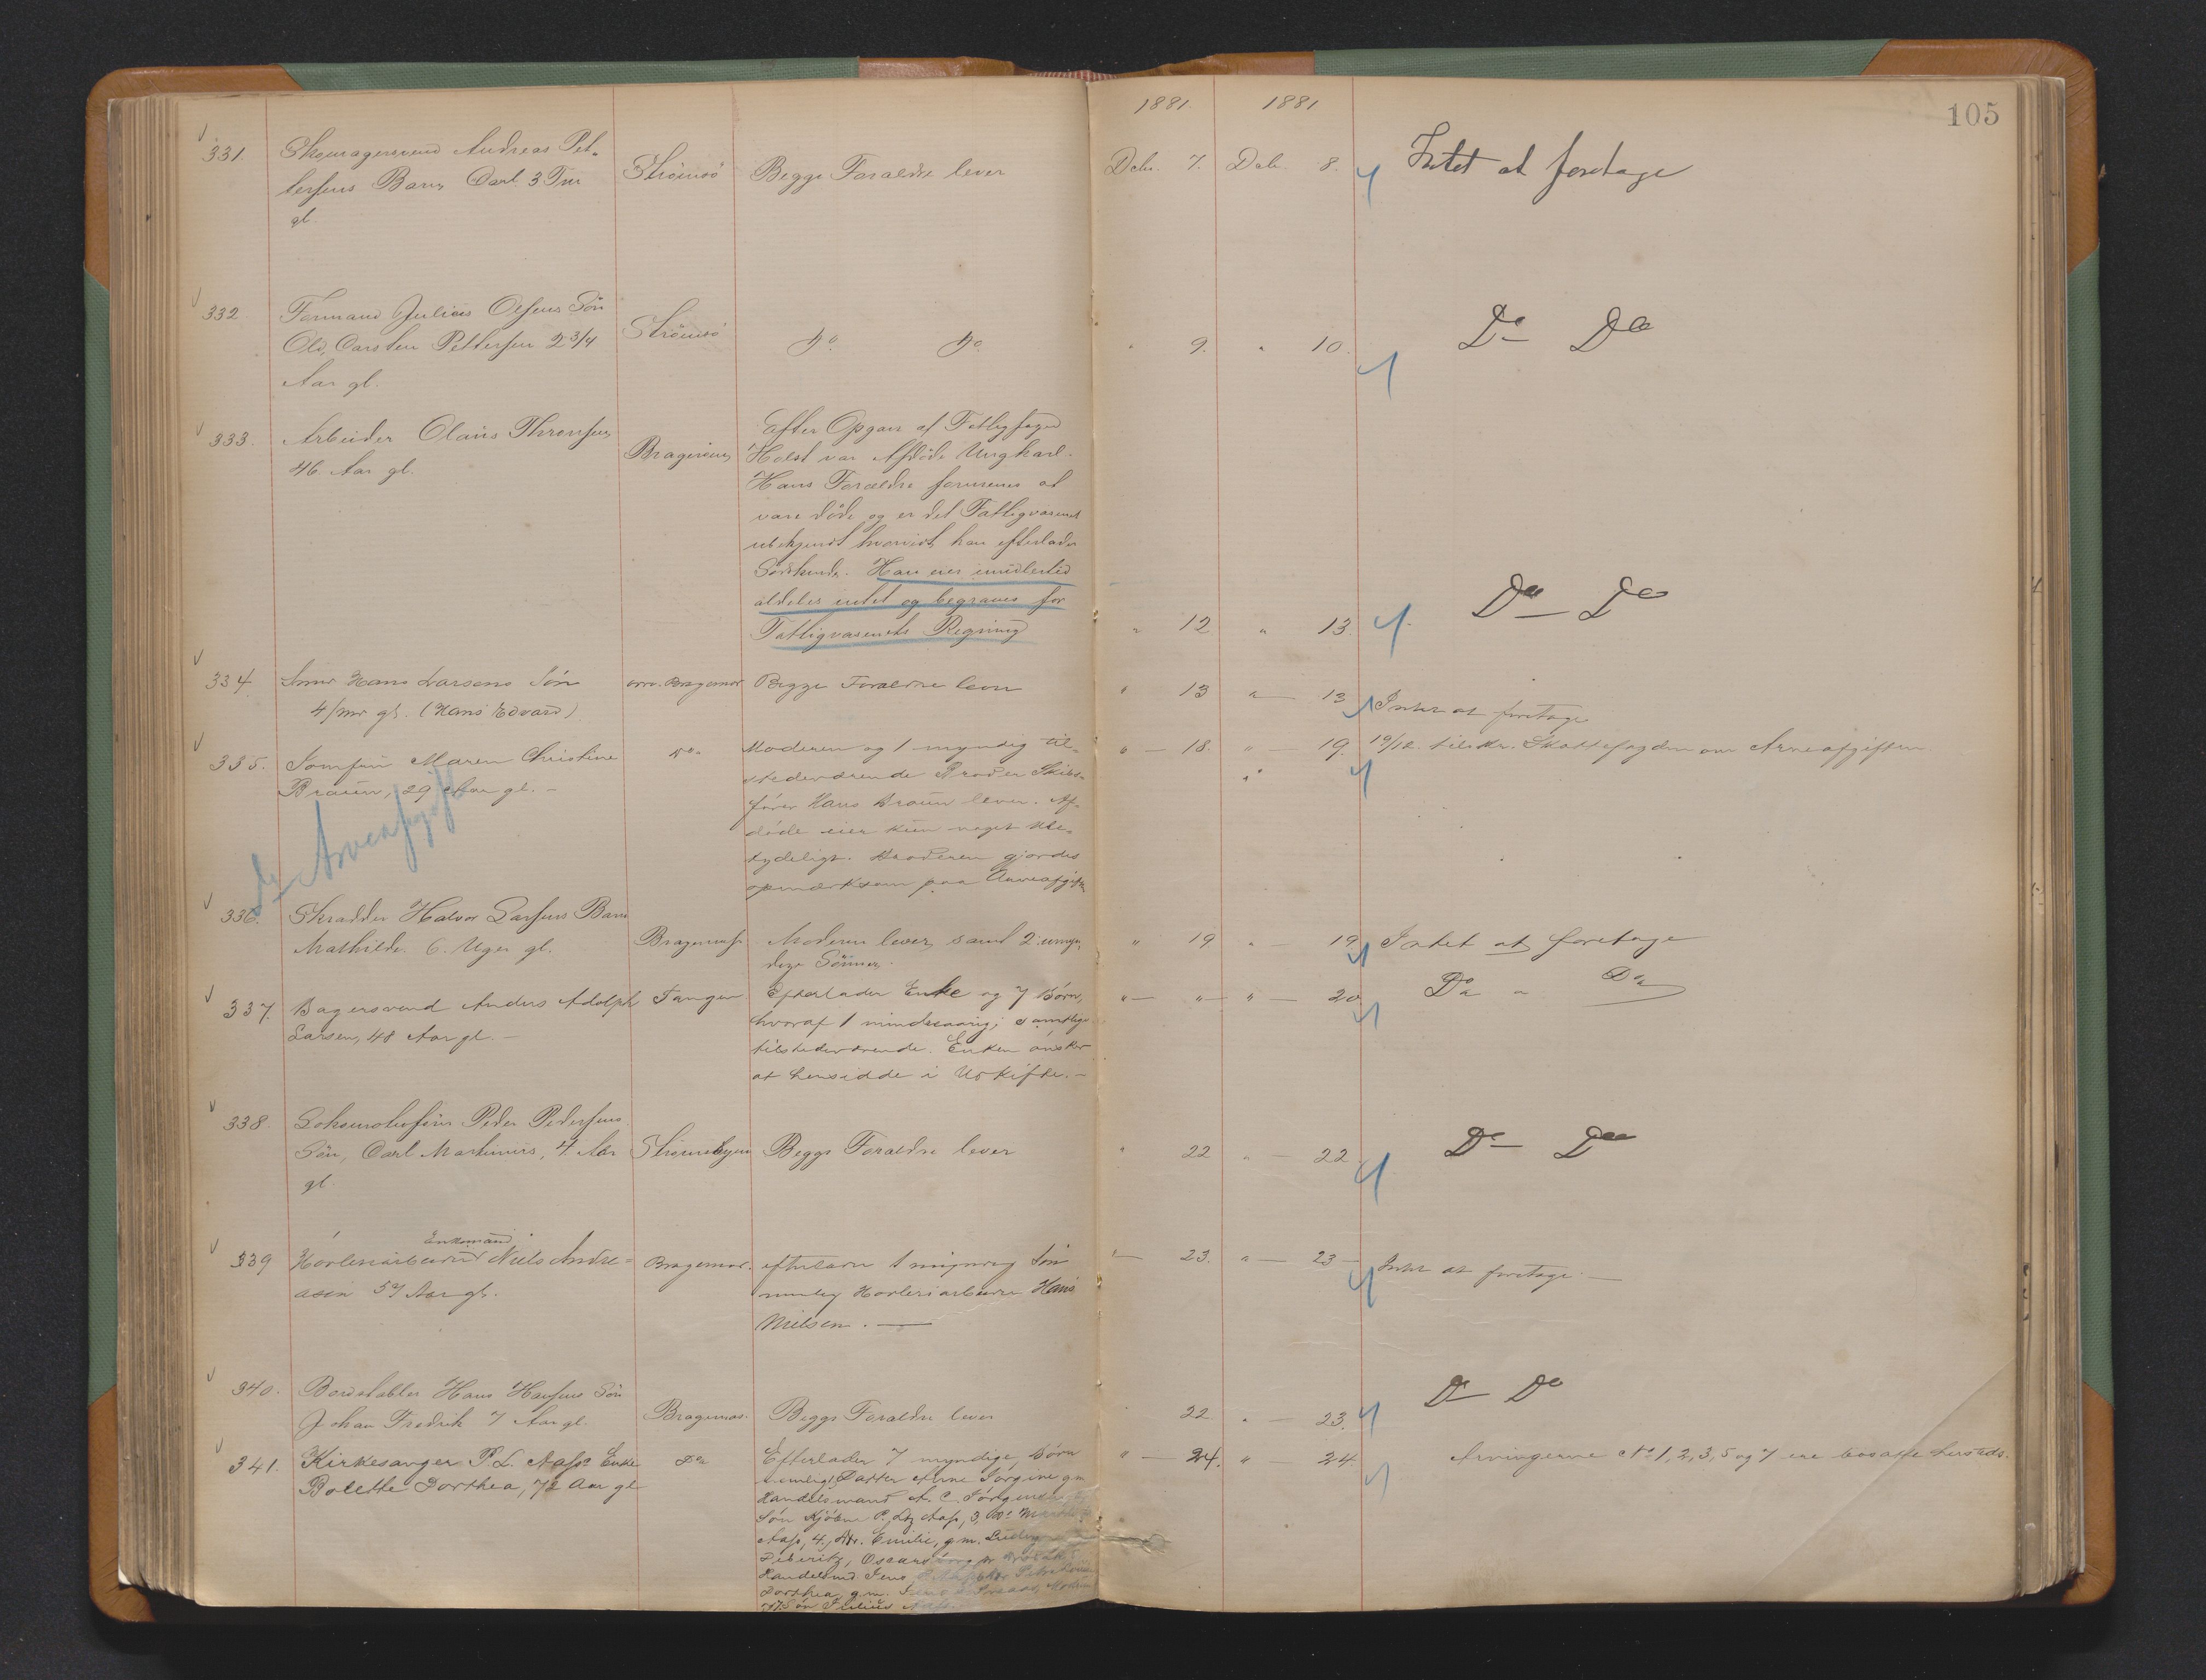 1881. 1881 105
331. Skomagersvend Andreas Pet-
tersens Barn Carl 3 Tmr
gl.
Strömsö
Begge Foraeldre lever
Decbr. 7. Decb. 8. Intet at foretage
332 Formand Julius Olsens Sön
Carsten Pettersen 2 3/4
Aar gl.
Strömsö
Do. Do
" 9. " 10. Do Do
333. Arbeider Olaus Thronsen
46 Aar gl.
Bragernes
Efter Opgave af Fattigfoged
Holst var Afdöde Ungkarl.
Hans Foraeldre formenes at
vare döde og er det Fattigvaesenet
ubekjendt hvorvidt han efterlader
Södskende. Han eier imidlertid
aldeles intet og begraves for
Fattigvaesenets Regning
" 12 " 13. Do Do
334. Hans Larsens Sön
4/mr gl. (Hans Edvard)
Bragernes
Begge Foraeldre lever
" 13 " 13 Intet at foretage
335. Jomfru Maren Christine
Braun, 29 Aar gl. -
Do
Moderen og 1 myndig til-
stedevaerende Broder Skibs-
förer Hans Braun lever. Af-
döde eier kun noget ube-
tydeligt. Broderen gjordes
opmaerksom paa Arveafgiften
" 18. " 19. 19/12. tilskr. Skattefogden om Arveafgiften.
Arveafgift
336. Skradder Halvor Larsens Barn
Mathilde 6 Uger gl.
Bragernes
Moderen lever, samt 2 umyn-
dige Sönner.
" 19 " 19 Intet at foretage
337. Bagersvend Anders Adolph
Larsen, 48 Aar gl. -
Tangen
Efterlader Enke og 7 Börn,
hvoraf 1 mindreaarig; samtlige
tilstedevaerende. Enken önsker
at hensidde i Uskifte. -
" " " 20. Do " Do
338. Lokomotivförer Peder Pedersens
Sön, Carl Martinius, 4 Aar
gl.
Strömsbyen
Begge Foraeldre lever
" 22 " 22. Do Do
Enkemand
339 Hövleriarbeider Niels Andre-
asen 57 Aar gl.
Bragernes.
efterlader 1 myndig Sön
nemlig Hövleriarbeider Hans
Nielsen.
" 23. " 23 Intet at foretage
340. Bordstabler Hans Hansens Sön
Johan Fredrik 7 Aar gl.
Bragernes.
Begge Foraeldre lever
22. " 23. Do Do
341. Kirkesanger P. L. Aass Enke
Bolette Dorthea, 72 Aar gl
Do
Efterlader 7 myndige Börn
nemlig 1, Datter Anne Jörgine g.m.
Handelsmand A. C.
Sön Kjöbm P. Aass, 3,
Aass, 4, Emilie, g.m.
Oscarsborg
Handelsmd. Jens
Dorthea, g.m.
7, Sön Julius
" 24. " 24. Arvingerne No 1, 2, 3, 5 og 7 ere bosatte hersteds.